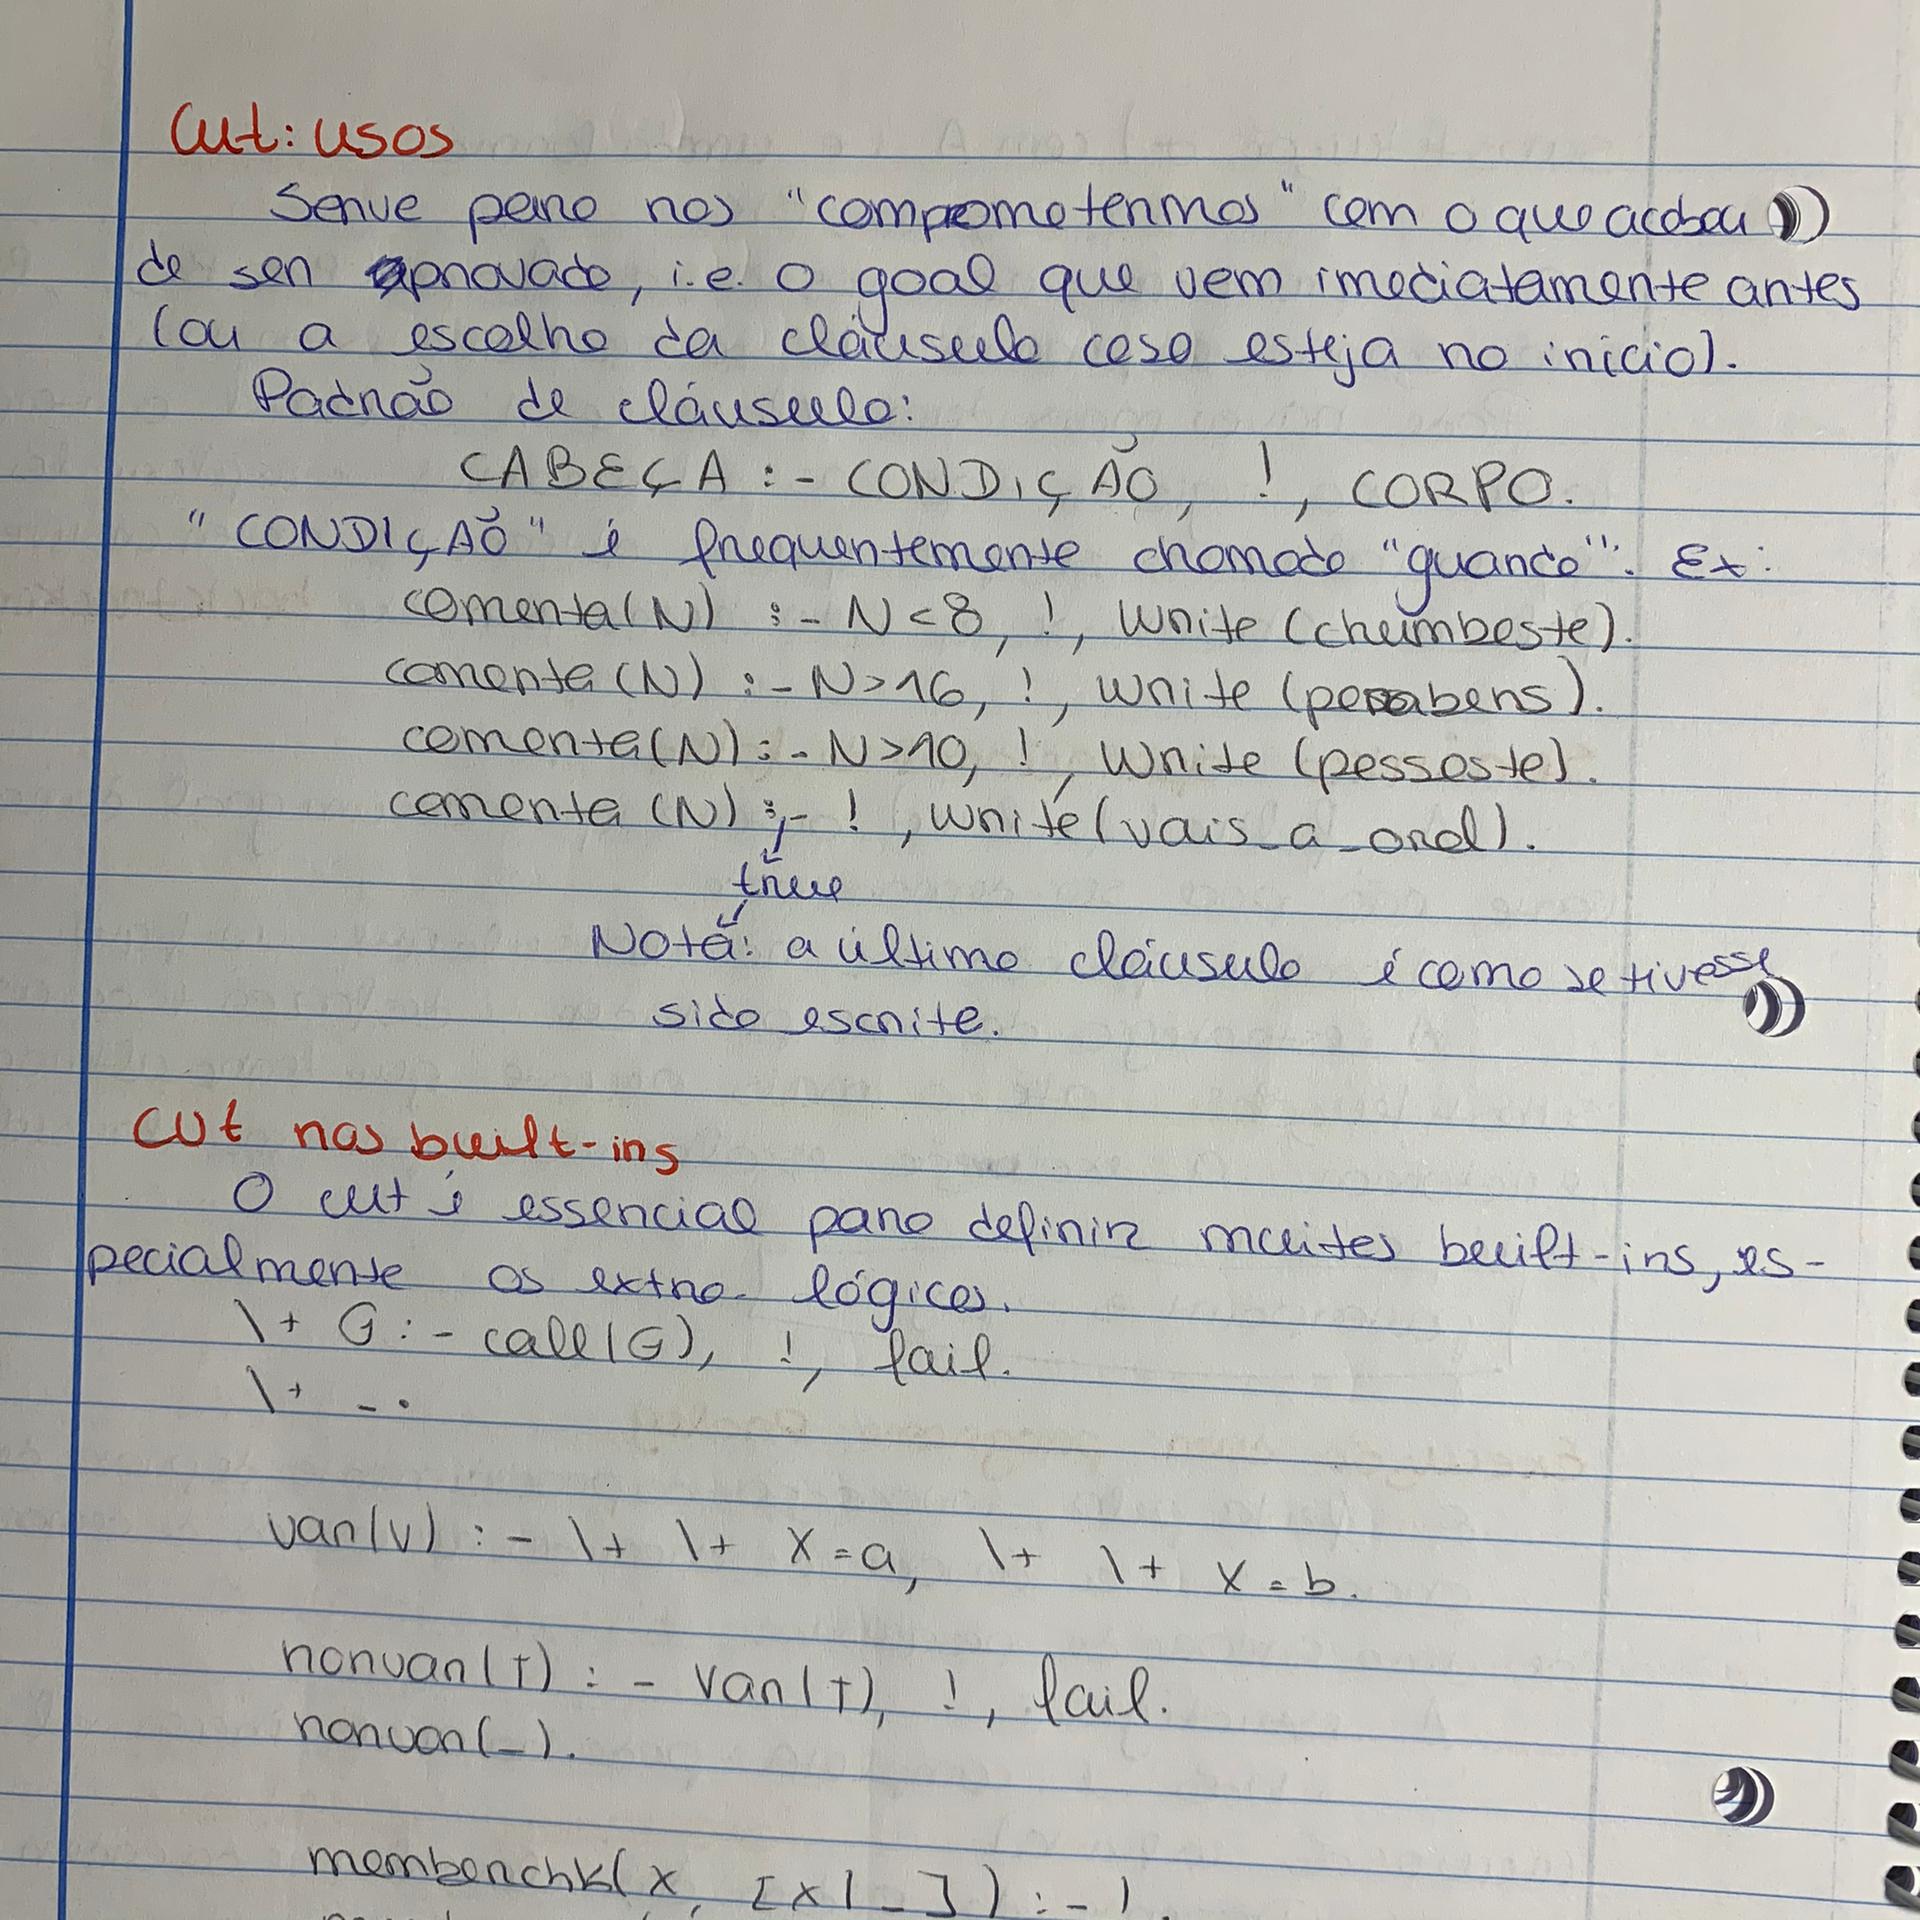 Cut: usos
Serve para nos "comprometermos" com o que acabou
de ser aprovado, i.e. o goal que vem imediatamente antes
(ou a escolha da cláusula caso esteja no início).
Padrão de cláusula:
CABEÇA :- CONDIÇÃO, !, CORPO.
"CONDIÇÃO" é frequentemente chamado "guarda". Ex:
comenta(N) :- N<8, !, write (chumbaste).
comenta (N) :- N>16, !, write (parabens).
comenta(N) :- N>10, !, write (passaste).
comenta (N) :- !, write(vais_a_oral).
true
Nota: a última cláusula é como se tivesse
sido escrita.
Cut nos built-ins
O cut é essencial para definir muitos built-ins, es-
pecialmente os extra-lógicos.
\+ G :- call(G), !, fail.
\+ _.
var(V) :- \+ \+ X=a, \+ \+ X=b.
nonvar(T) :- var(T), !, fail.
nonvar(_).
memberchk(X, [X|_]) :- !.